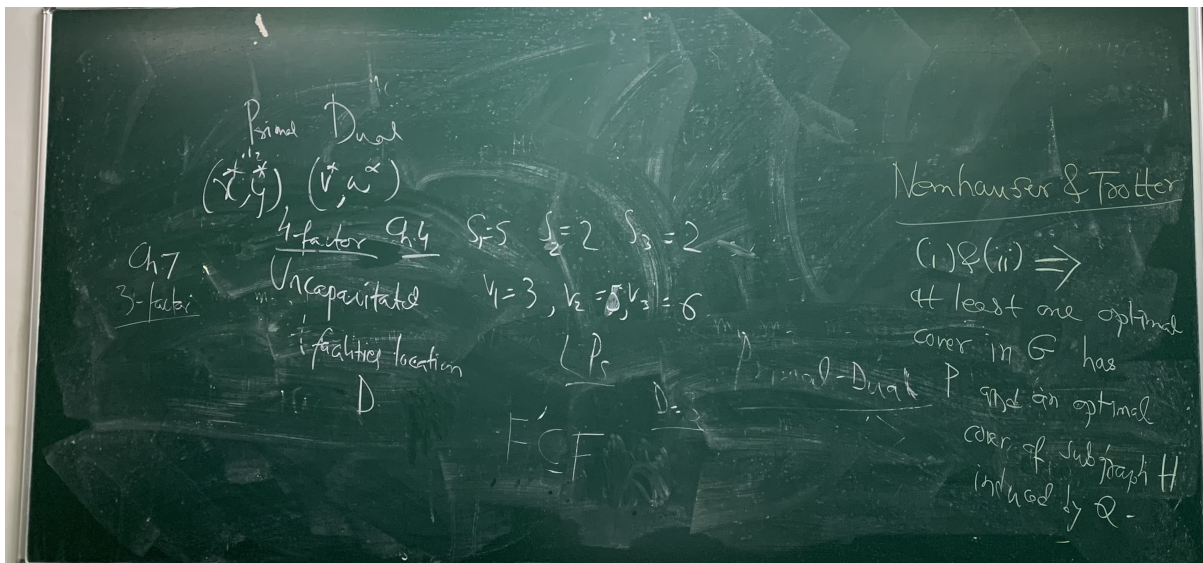 Primal Dual
(x*, y*), (v*, w*)
4-factor Ch.4
Ch 7
3-factor
Uncapacitated
facilities location
D
S₁=5 S₂=2 S₃=2
V₁=3, V₂=5, V₃=6
LPs
Primal-Dual
D=
F'⊆F
Nemhauser & Trotter
(i)&(ii) ⇒
At least one optimal
cover in G has
P and an optimal
cover of subgraph H
induced by Q.